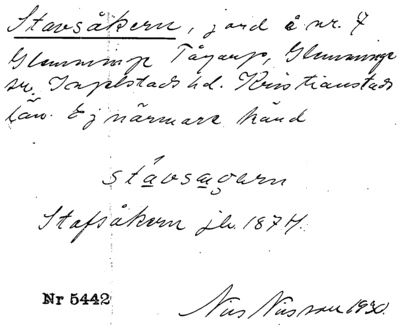 Stavsåkern, jord å nr. 7
Glemminge Tågarp, Glemminge
sn. Ingelstads hd. Kristianstads
län. Ej närmare känd
stávsagern
Stafsåkern jb. 1877.
Nr 5442
Nils Nilsson 1930.